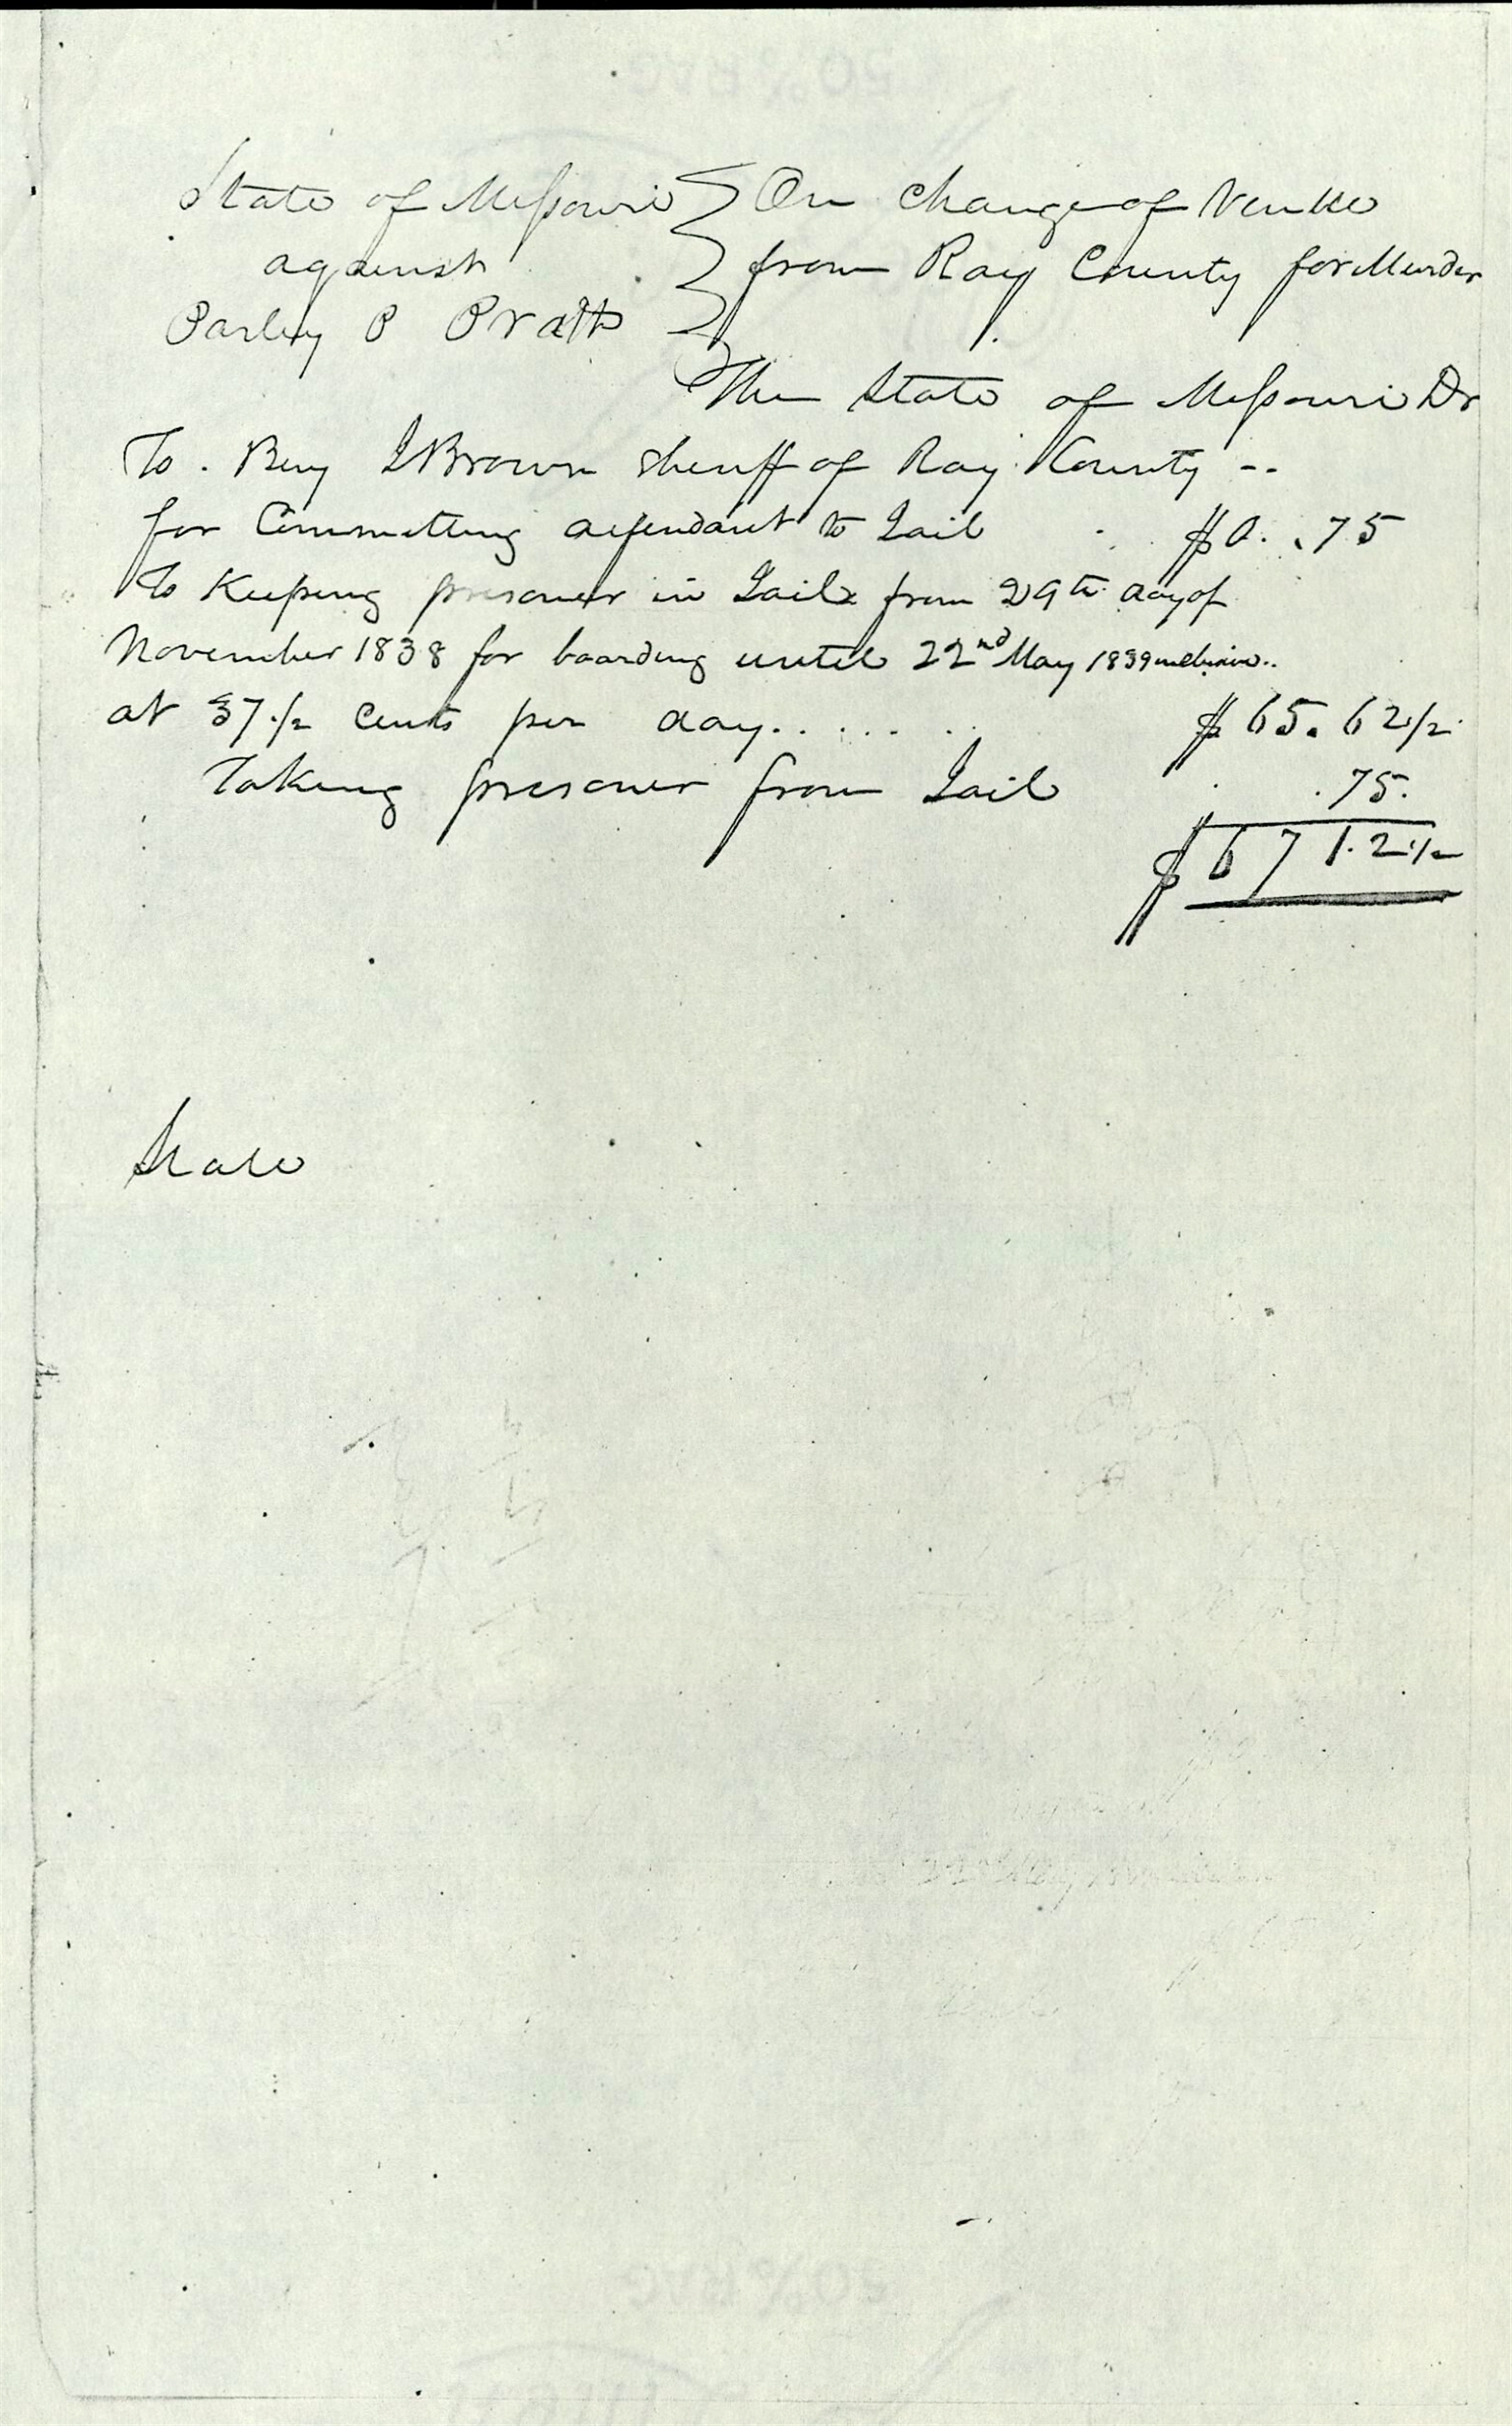 State of Missouri } On Change of Venue
against } from Ray County for Murder
Parley P Pratt }
The State of Missouri Dr
To . Benj J Brown sheriff of Ray County --
for Committing defendant to Jail $0. .75
To Keeping prisoner in Jail from 29th day of
November 1838 for boarding until 22nd May 1839 inclusive..
at 37 1/2 Cents per day...... $65.62 1/2
Taking prisoner from Jail .75.
$67 1.2 1/2
State
50% RAG
50% RAG